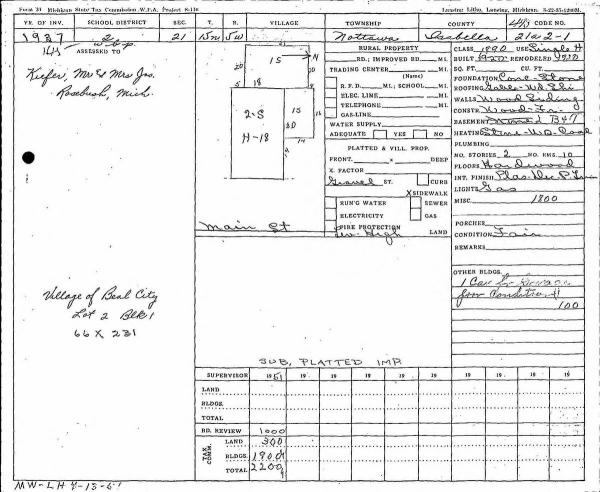 Form 20 Michigan State Tax Commission W.P.A. Project
Lansing Litho, Lansing, Michigan
YR. OF INV. SCHOOL DISTRICT SEC. T. R. VILLAGE TOWNSHIP COUNTY
1937 2 21 15N 5W Nottawa Isabella 21a2-1
ASSESSED TO
Kiefer, Mr & Mrs Jos.
Rosebush, Mich.
N
15
5
18
2-S
H-18
15
15
Main St
Village of Beal City
Lot 2 Blk 1
66 X 231
RURAL PROPERTY
RD.; IMPROVED RD. MI.
TRADING CENTER MI.
(Name)
R. F. D. MI.; SCHOOL MI.
ELEC. LINE MI.
TELEPHONE MI.
GAS-LINE MI.
WATER SUPPLY
ADEQUATE YES NO
PLATTED & VILL. PROP.
FRONT. x DEEP
X. FACTOR
Gravel ST. CURB
X SIDEWALK
RUN'G WATER SEWER
ELECTRICITY GAS
FIRE PROTECTION
Lev. High LAND
CLASS USE Single H
BUILT REMODELED
SQ. FT. CU. FT.
FOUNDATION Conc-Stone
ROOFING Gable-Wd Shi
WALLS Wood Siding
CONSTR. Wood-Fr
BASEMENT
HEATING Stove-Wd. Coal
PLUMBING
NO. STORIES 2 NO. RMS. 10
FLOORS Hardwood
INT. FINISH
LIGHTS Gas
MISC. 1800
PORCHES
CONDITION Fair
REMARKS
OTHER BLDGS.
1 Car
Poor Condition
100
SUB, PLATTED IMP
SUPERVISOR 1951 19 19 19 19 19 19 19
LAND
BLDGS.
TOTAL
BD. REVIEW 1000
TAX COMM.
LAND 300
BLDGS. 1900
TOTAL 2200